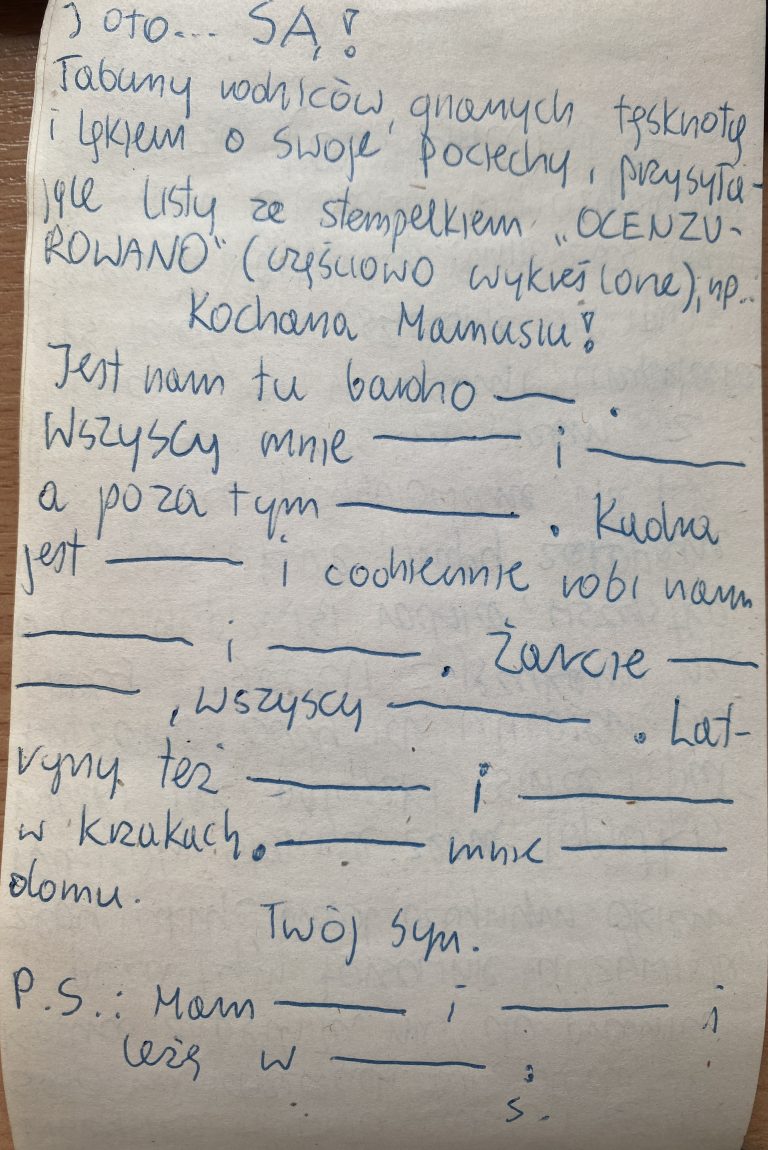 I oto... SĄ!
Tabuny rodziców, gnanych tęsknotą
i lękiem o swoje pociechy, przysyła-
jące listy ze stempelkiem „OCENZU-
ROWANO" (częściowo wykreślone), np.:
Kochana Mamusiu!
Jest nam tu bardzo ___ .
Wszyscy mnie ___ i ___
a poza tym ___ . Kadra
jest ___ i codziennie robi nam
___ i ___ . Żarcie ___
___ , wszyscy ___ . Lat-
ryny też ___ i ___
w krzakach. ___ mnie ___
domu.
Twój syn.
P.S.: Mam ___ i ___ i
leżę w ___ .
s.